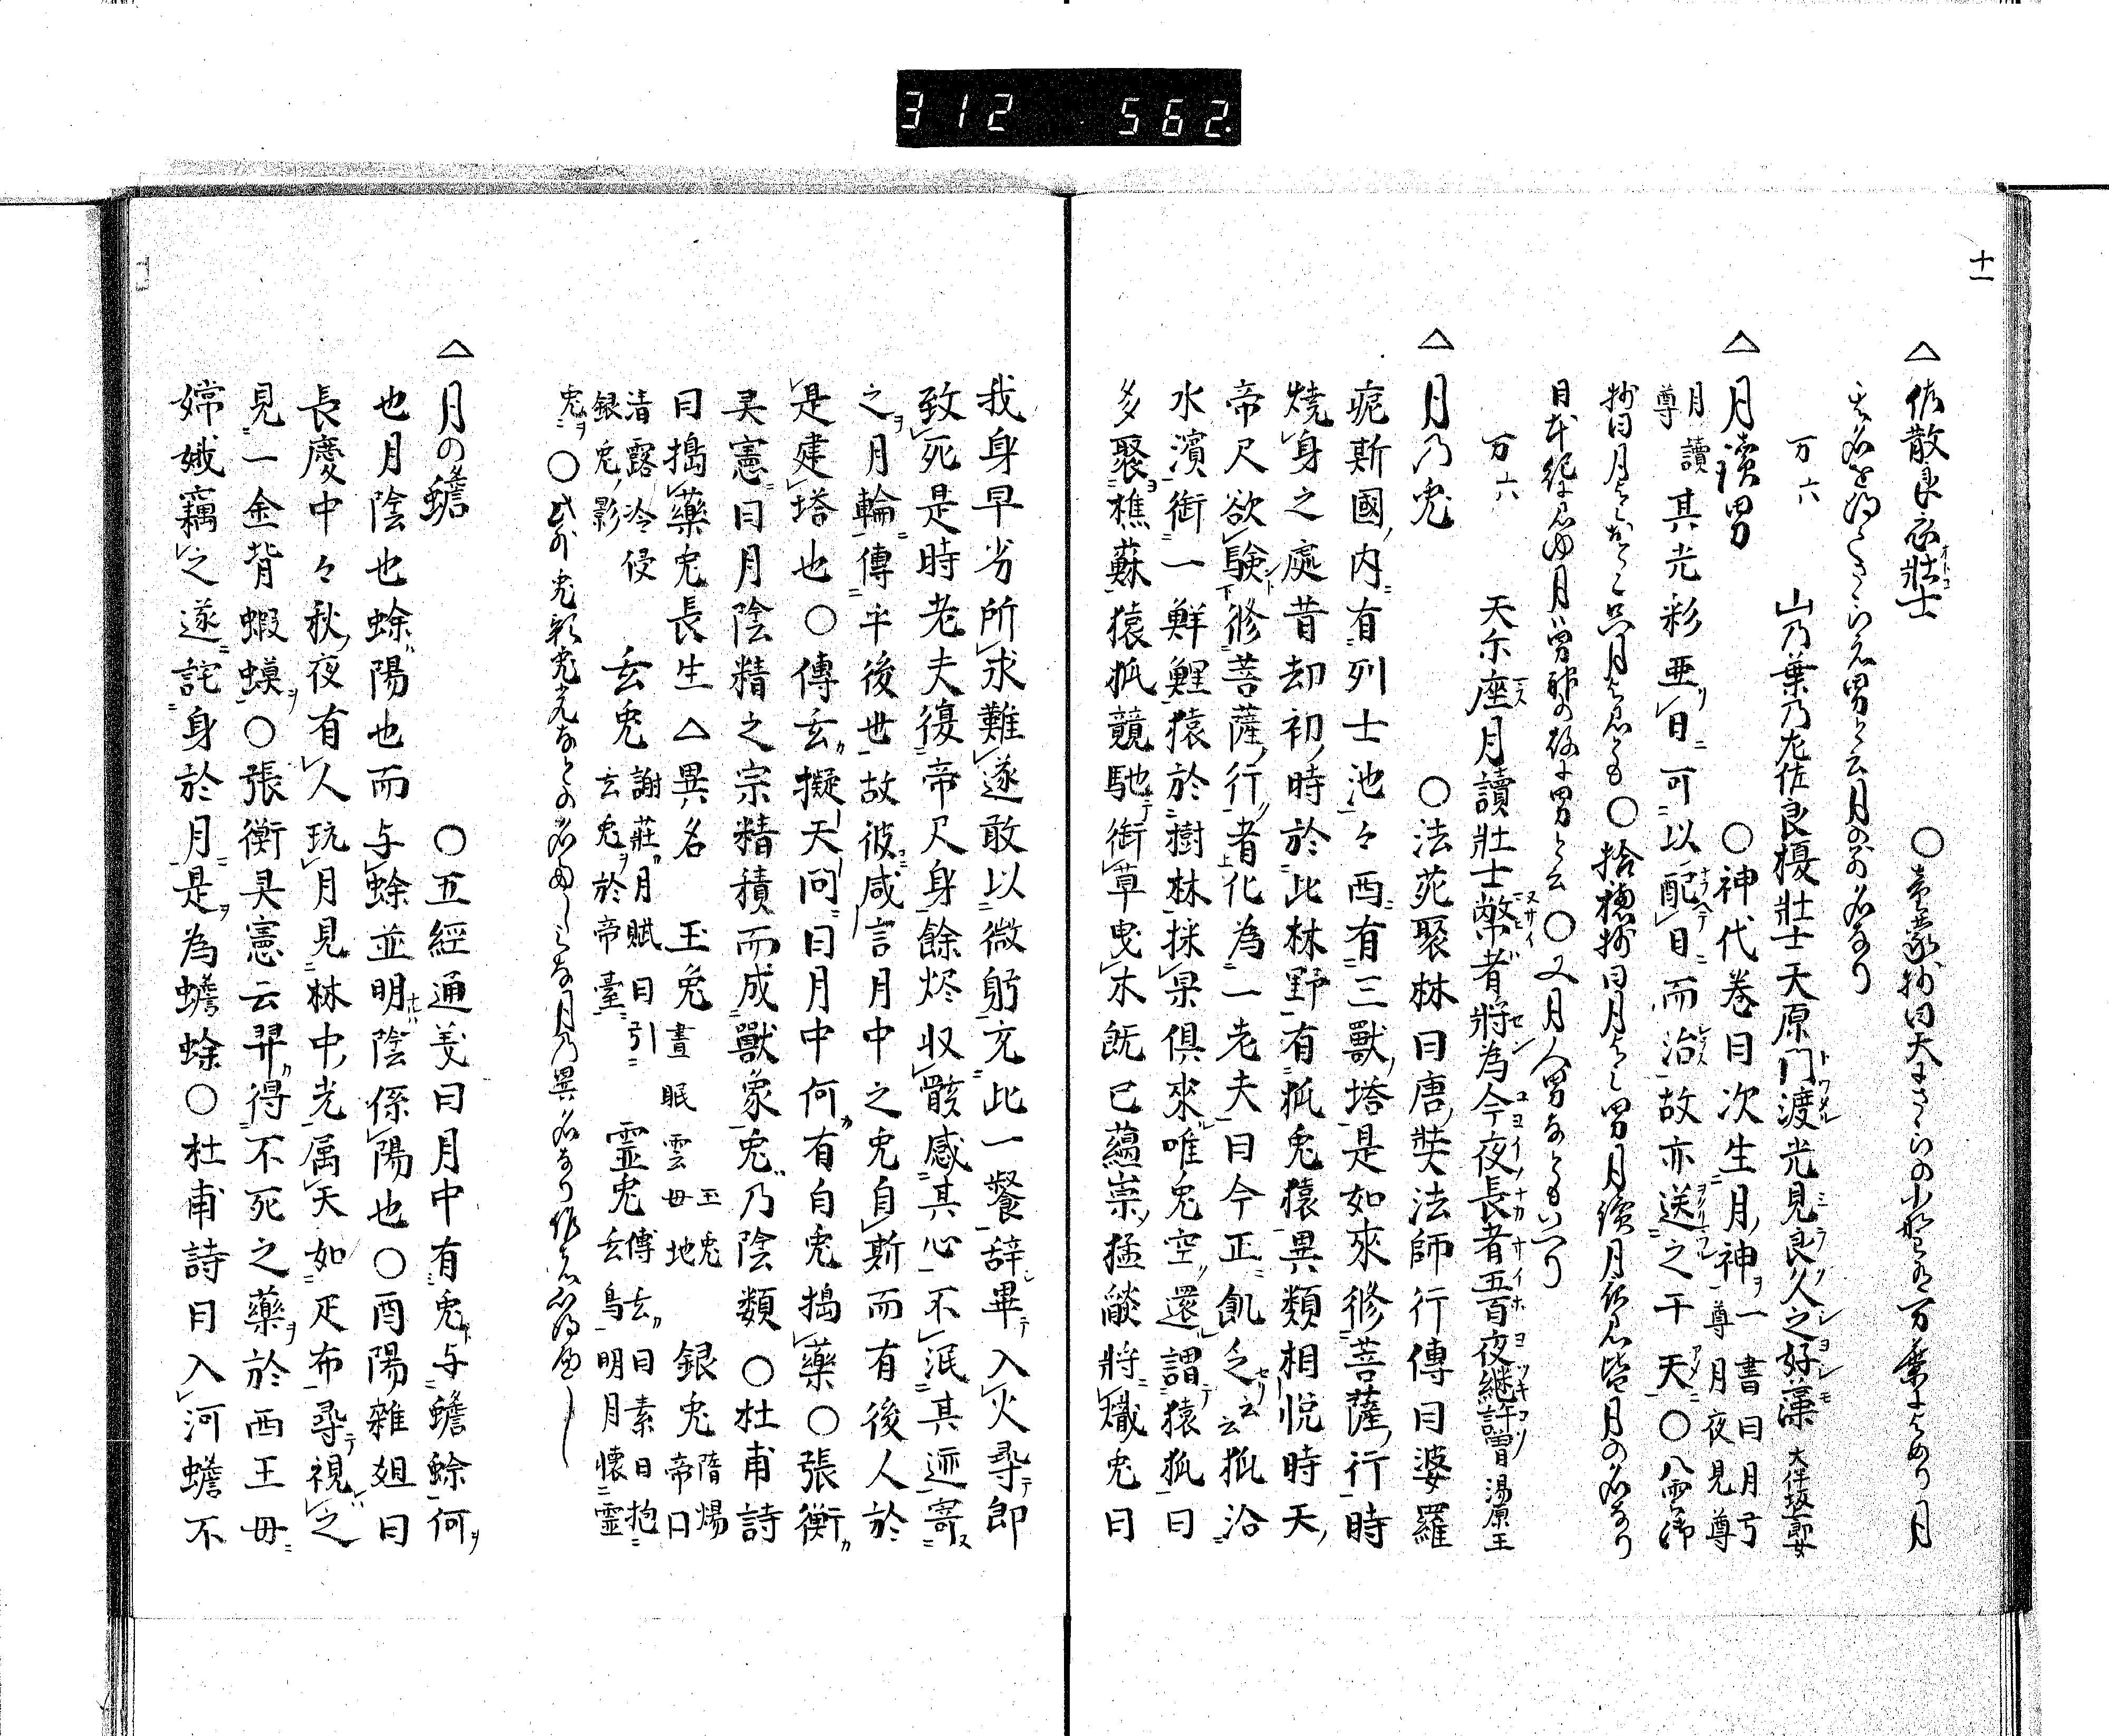 312 562.
十一
△佐散良衣壮士 ○童蒙抄曰天にさゝらの小野あり万葉によめり月
の名をばさゝらえ男と云月の別名なり
万六 山乃葉乃左佐良榎壮士天原門渡光見良久之好藻 大伴坂上郎女
△月讀男 ○神代巻曰次生月神一書曰月弓尊月夜見尊
月讀尊其光彩亜日可以配日而治故亦送之于天○八雲御
抄曰月よみおとこ只月よみとも○拾穂抄曰月よみ男月讀月夜見皆月の名なり
日本紀に
又月人男なともいへり
万六 天尓座月讀壮士幣者将為今夜長者五百夜継許曽 湯原王
△月乃兎 ○法苑聚林曰唐奘法師行傳曰婆羅
痆斯國内有列士池々西有三獣塔是如來修菩薩行時
燒身之處昔却初時於此林野有狐兎猿異類相悦時天
帝尺欲験修菩薩行者化為一老夫曰今正飢乏云云狐沿
水濱銜一鮮鯉猿於樹林採菓倶來唯兎空還謂猿狐曰
多聚樵蘇猿狐競馳銜草曳木既已蘊崇猛燄将熾兎曰
我身早劣所求難遂敢以微躬充此一餐辞畢入火尋即
致死是時老夫復帝尺身餘烬収骸感其心不泯其迹寄
之月輪傳乎後世故彼咸言月中之兎自斯而有後人於
是建塔也○傳玄擬天問曰月中何有白兎搗藥○張衡
灵憲曰月陰精之宗精積而成獣象兎乃陰類○杜甫詩
曰搗藥兎長生△異名 玉兎 晝眠雲母地 玉兎 銀兎 隋煬帝曰
清露冷侵銀兎影 玄兎 謝荘月賦曰引玄兎於帝臺 霊兎 傳玄曰素日抱玄烏明月懐霊
兎○此外兎影兎光なとの名
△月の蟾 ○五經通義曰月中有兎与蟾蜍何
也月陰也蜍陽也而与蜍並明陰係陽也○酉陽雜俎曰
長慶中々秋夜有人玩月見林中光属天如疋布尋視之
見一金背蝦蟆○張衡灵憲云羿得不死之藥於西王母
嫦娥竊之遂託身於月是為蟾蜍○杜甫詩曰入河蟾不